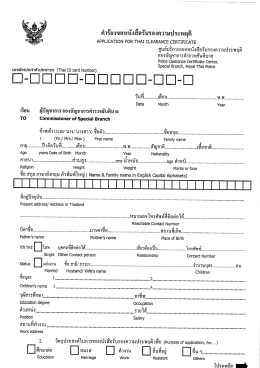 คำร้องขอหนังสือรับรองความประพฤติ
APPLICATION FOR THAI CLEARANCE CERTIFICATE
ศูนย์บริการออกหนังสือรับรองความประพฤติ
กองบัญชาการตำรวจสันติบาล
Police Clearance Certificate Center,
Special Branch, Royal Thai Police
(Thai ID card Number)
วันที่ เดือน พ.ศ.
Date Month Year
เรียน ผู้บัญชาการ กองบัญชาการตำรวจสันติบาล
TO Commissioner of Special Branch
ข้าพเจ้า (นาย/ นาง/ นางสาว) ชื่อตัว ชื่อสกุล
I (Mr./ Mrs./ Miss) First name Family name
อายุ ปี เกิดวันที่ เดือน พ.ศ. สัญชาติ
Age years Date of Birth Month Year Nationality
ศาสนา ส่วนสูง น้ำหนัก ตำหนิ
Religion Height Weight Marks or Scars
(Name & Family name in English Capital Alphabets)
ที่อยู่ปัจจุบัน
Present address/ Address in Thailand
หมายเลขโทรศัพท์ที่ติดต่อได้
Reachable Contact Number
บิดาชื่อ มารดาชื่อ สถานที่เกิด
Father's name Mother's name Place of Birth
สถานะ โสด บุคคลที่ติดต่อได้ โทรศัพท์
Single Other Contact person Relationship Contact Number
Status ชื่อ สามี/ ภรรยา จำนวนบุตร คน
Married Husband/ Wife's name Children
ชื่อบุตร 1 2
Children's name 3 4
วุฒิการศึกษา อาชีพ
Education degree Occupation
ตำแหน่ง รายได้
Position Salary
สถานที่ทำงาน
Work address
1. วัตถุประสงค์ในการขอหนังสือรับรองความประพฤติ เพื่อ (Purpose of application, for....)
ศึกษาต่อ สมรส ทำงาน อื่นๆ
Education Marriage Work Resident Others
โปรดพลิก